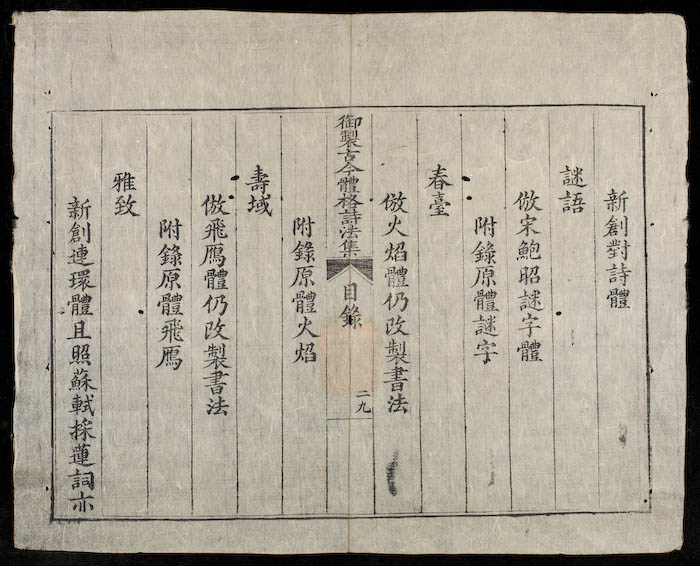 新創對詩體
謎語
倣宋鮑昭謎字體
附錄原體謎字
春臺
倣火焰體仍改製書法
御製古今體格詩法集
目錄
二九
附錄原體火焰
壽域
倣飛鴈體仍改製書法
附錄原體飛鴈
雅致
新創連環體且照蘇軾採蓮詞亦